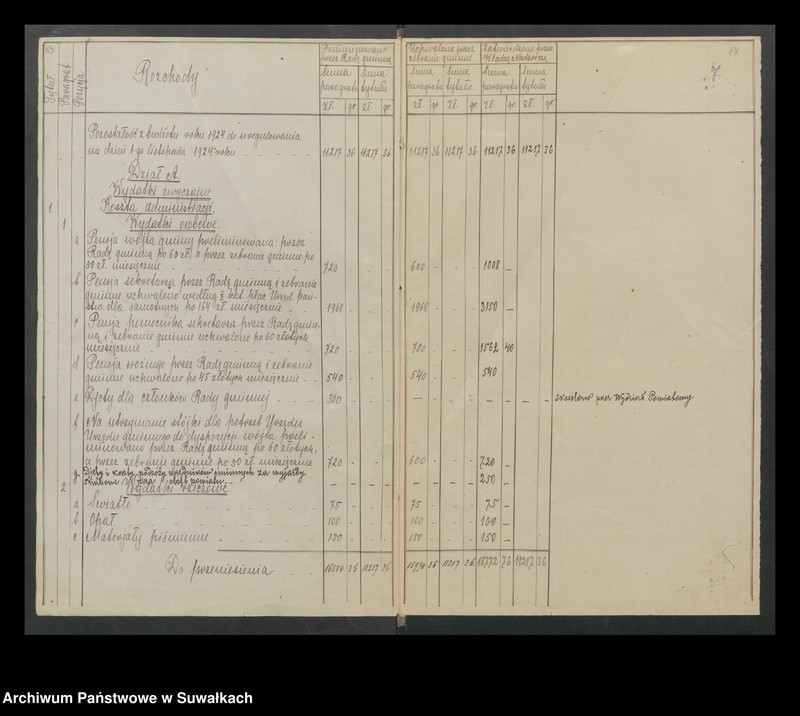 84
7
Tytuł
Paragraf
Pozycja
Rozchody
Preliminowano przez Radę gminną
Uchwalono przez zebranie gminne
Zatwierdzono przez Władzę Nadzorczą
Suma paragrafu Suma tytułu Suma paragrafu Suma tytułu Suma paragrafu Suma tytułu
zł. gr. zł. gr. zł. gr. zł. gr. zł. gr. zł. gr.
Pozostałość z budżetu roku 1924 do uregulowania
na dzień 1-go listopada 1924 roku 11217 36 11217 36 11217 36 11217 36 11217 36 11217 36
Dział A.
Wydatki zwyczajne
1 Koszta administracji.
1 Wydatki osobowe.
a Pensja wójta gminy preliminowana przez
Radę gminną po 60 zł. a przez zebranie gminne po
50 zł. miesięcznie 720 - - - 600 - - - 1008 -
b Pensja sekretarza przez Radę gminną i zebranie
gminne uchwalono według X kat. płac Urzęd. pań-
stw. dla samotnych po 164 zł. miesięcznie 1968 - - - 1968 - - - 3150 -
c Pensja pomocnika sekretarza przez Radę gmin-
ną i zebranie gminne uchwalono po 60 złotych
miesięcznie 720 - - - 720 - - - 1562 40
d Pensja woźnego przez Radę gminną i zebranie
gminne uchwalono po 45 złotych miesięcznie 540 - - - 540 - - - 540
e Djety dla członków Rady gminnej 300 - - - - - - - - - - - skreślono przez Wydział Powiatowy
f Na utrzymanie stójki dla potrzeb Urzędu
Urzędu gminnego do dyspozycji wójta preli-
minowano przez Radę gminną po 60 złotych,
a przez zebranie gminne po 50 zł. miesięcznie 720 - - - 600 - - - 720 -
g Djety i koszty podróży urzędników gminnych za wyjazdy
służbowe - - - - - - - - 250 -
2 Wydatki rzeczowe
a Światło 75 - - - 75 - - - 75 -
b Opał 100 - - - 100 - - - 100 -
c Materjały piśmienne 150 - - - 150 - - - 150 -
Do przeniesienia 36 11217 36 36 11217 36 18772 76 11217 36
Archiwum Państwowe w Suwałkach